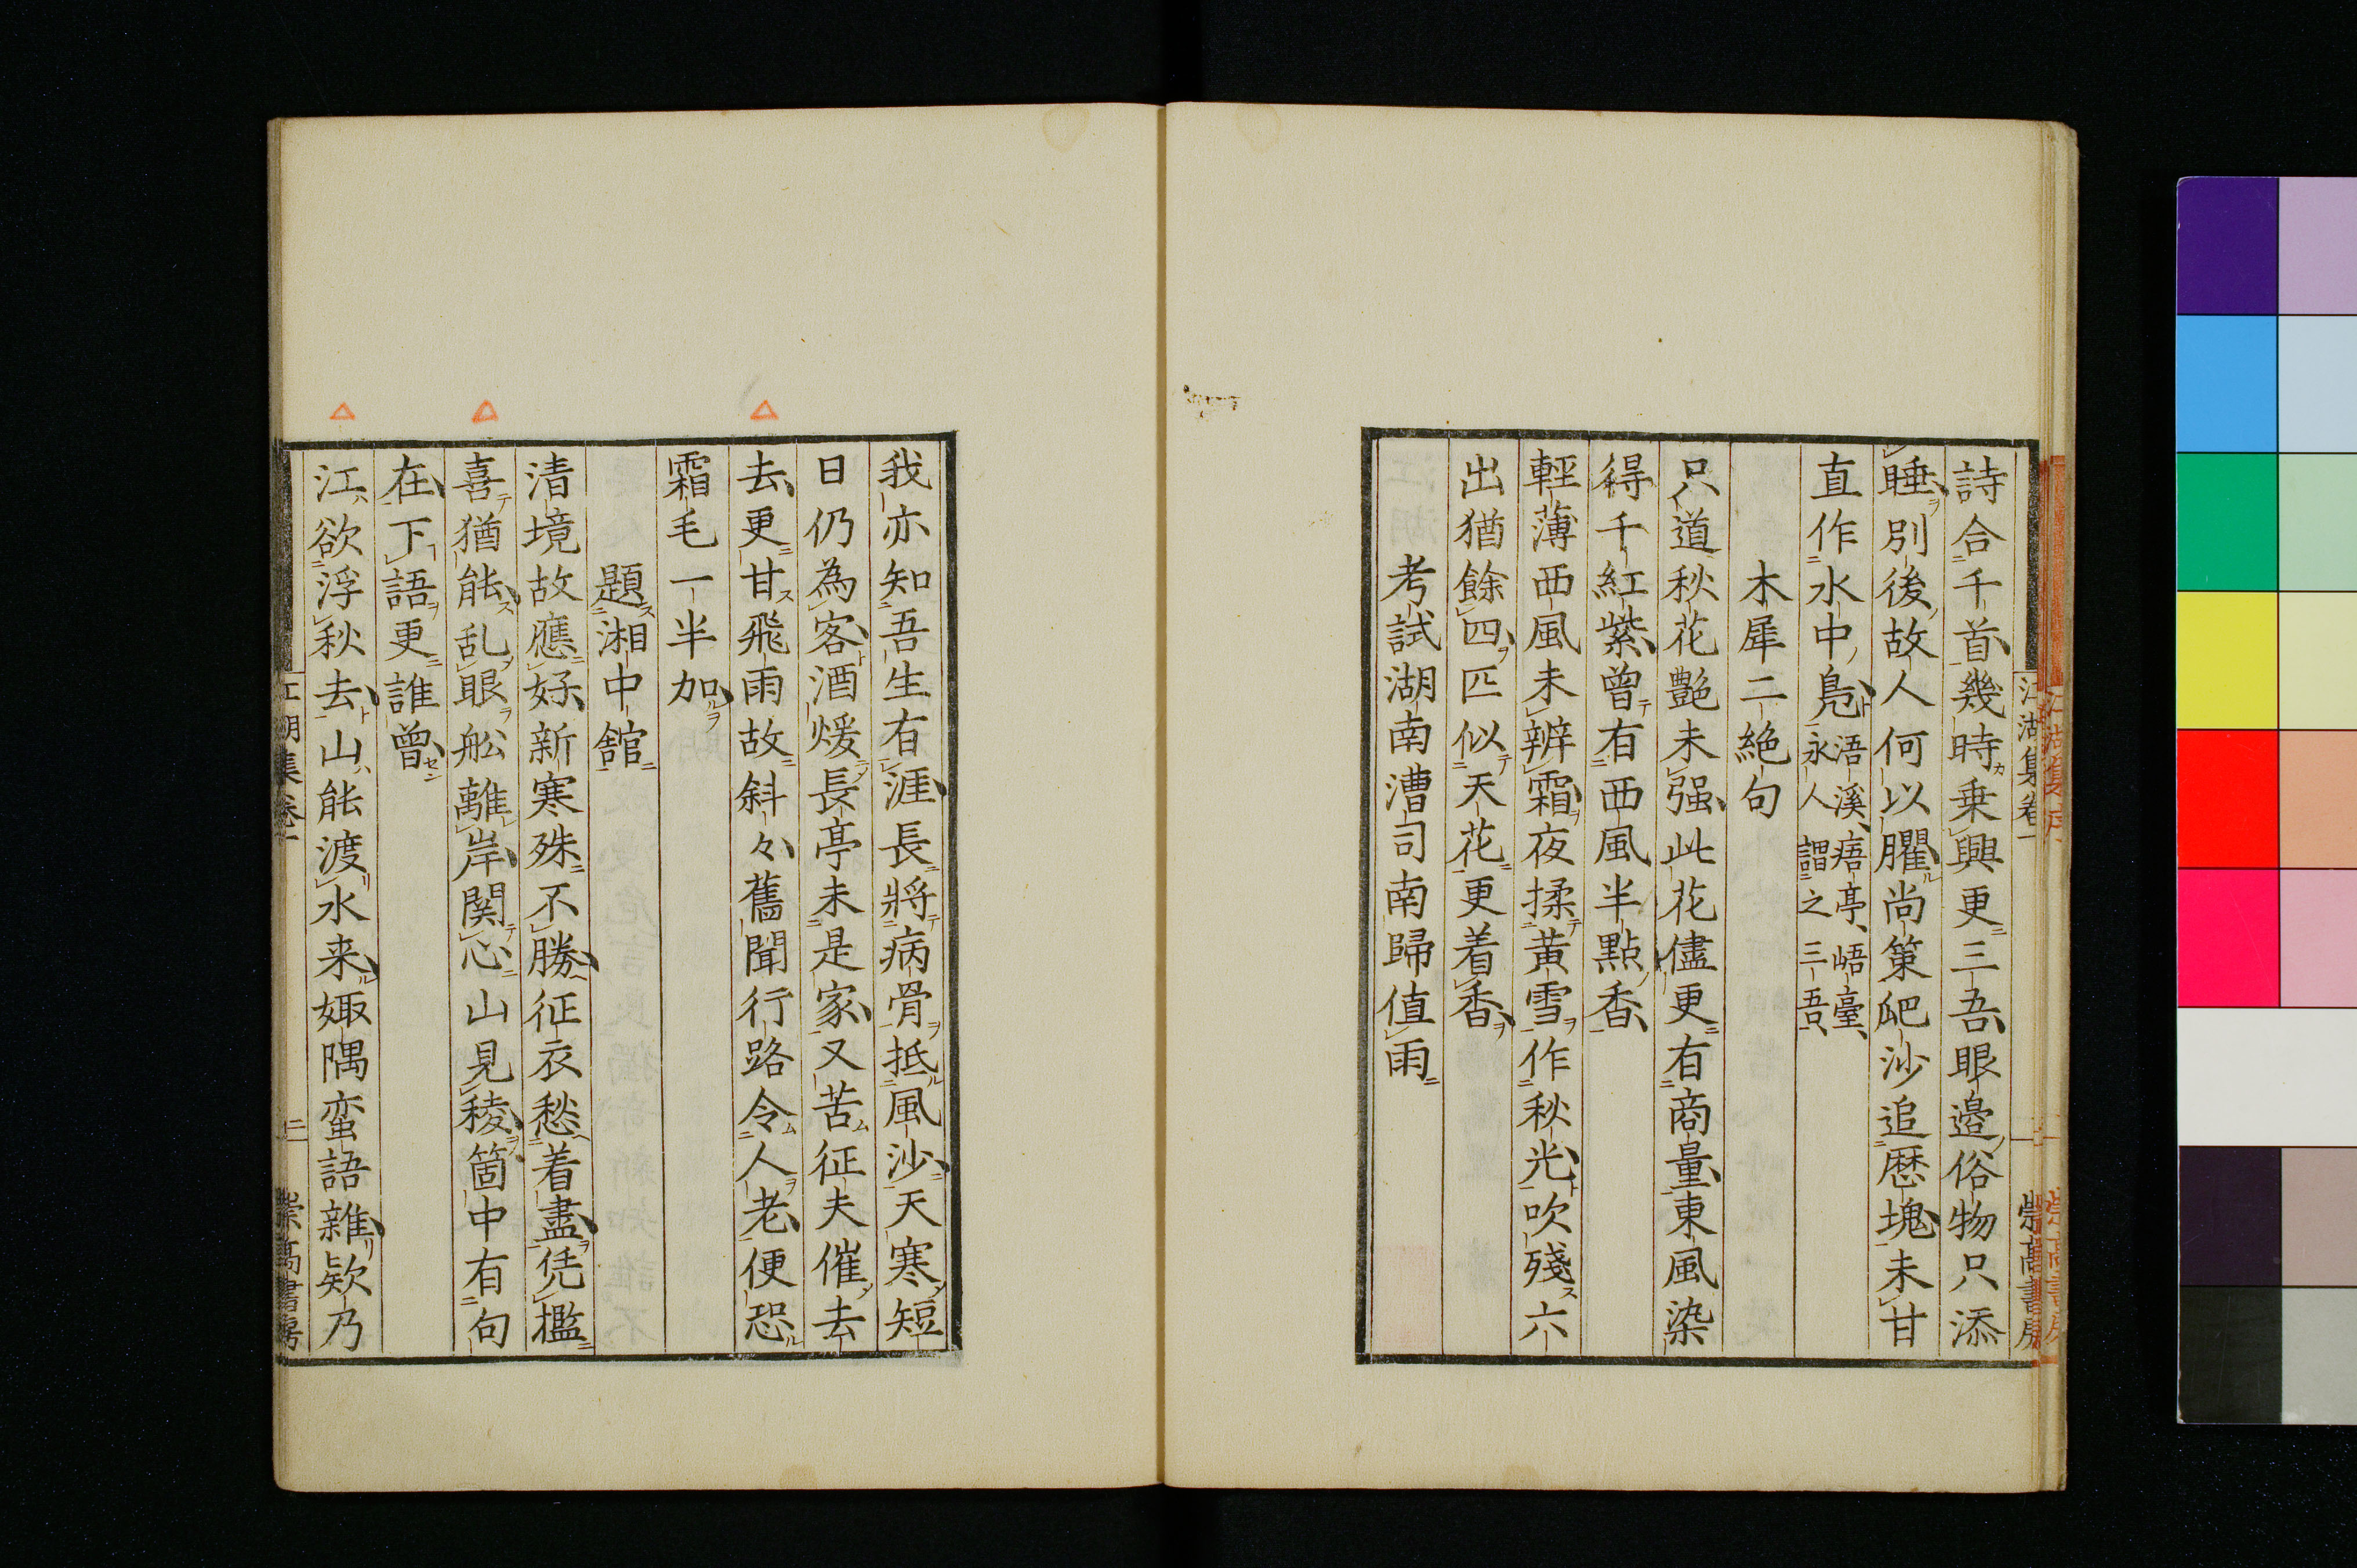 詩合千首幾時乗興更三吾眼邉俗物只添
睡別後故人何以臞尚策爬沙追歴塊未甘
直作水中鳧浯溪、㾏亭、峿臺、永人謂之三吾、
木犀二絶句
只道秋花艶未强此花儘更有商量東風染
得千紅紫曾有西風半點香
輕薄西風未辨霜夜揉黄雪作秋光吹殘六
出猶餘四匹似天花更着香
考試湖南漕司南歸值雨
江湖集卷一
崇高書房
我亦知吾生有涯長將病骨抵風沙天寒短
日仍為客酒煖長亭未是家又苦征夫催去
去更甘飛雨故斜々舊聞行路令人老便恐
霜毛一半加
題湘中館
清境故應好新寒殊不勝征衣愁着盡凭檻
喜猶能乱眼舩離岸関心山見稜箇中有句
在下語更誰曾
江欲浮秋去山能渡水来娵隅蛮語雜欵乃
江湖集卷一
二
崇高書房